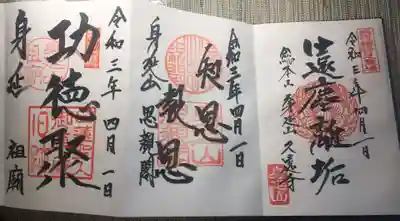 令和三年四月一日
遠塵離垢
総本山 身延山 久遠寺
令和三年四月一日
知恩
報恩
身延山 思親閣
令和三年 四月 一日
功徳聚
身延 祖廟